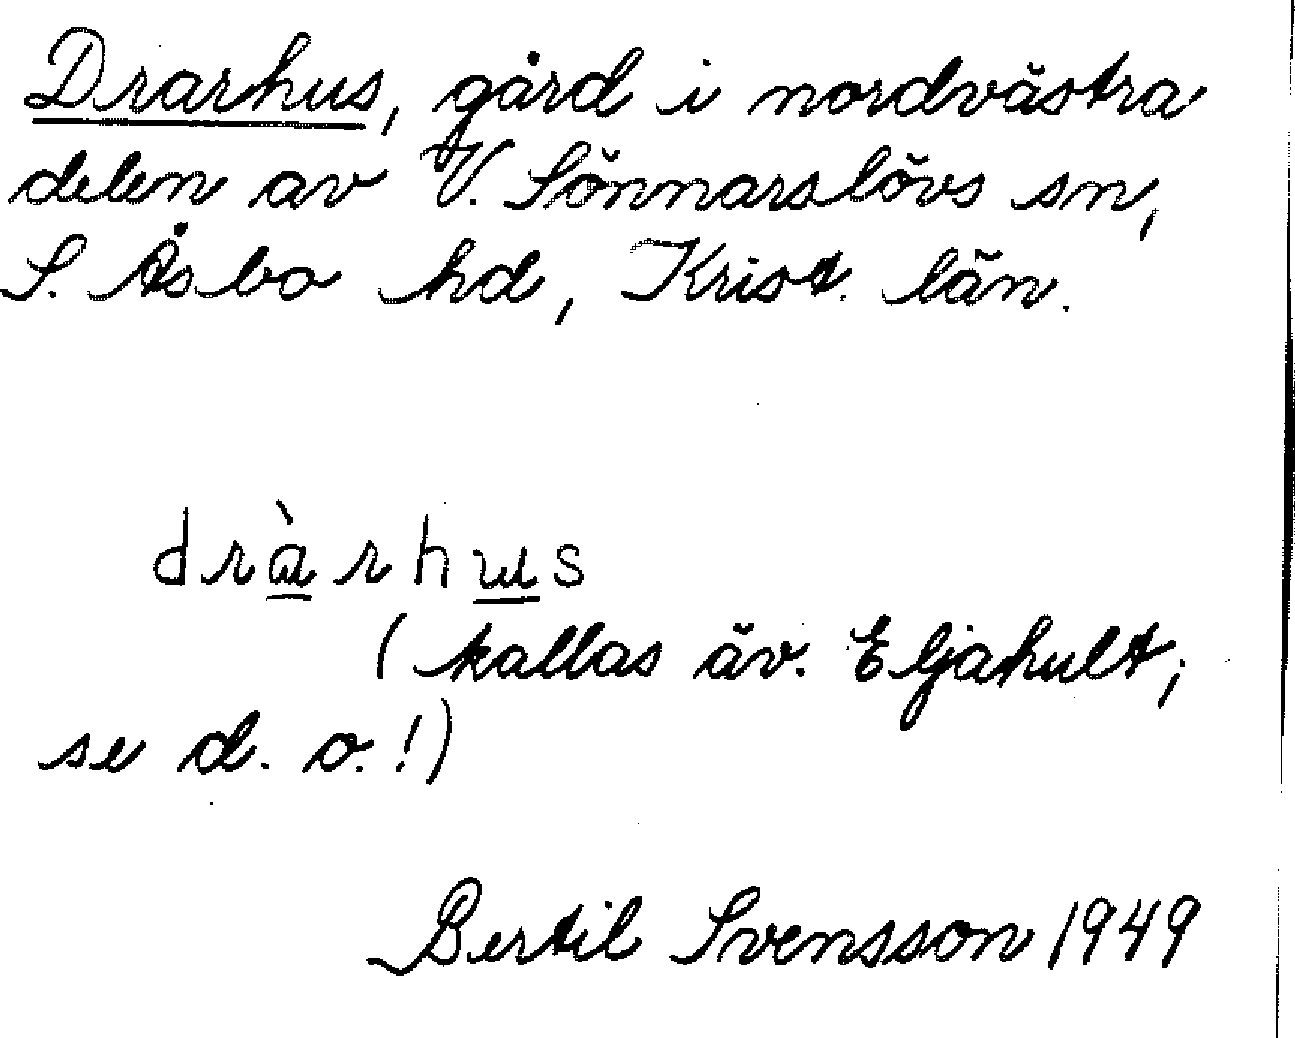 Drarhus, gård i nordvästra
delen av V. Sönnarslövs sn,
S. Åsbo hd, Krist. län.
dràrhus
(kallas äv. Eljahult;
se d. o.!)
Bertil Svensson 1949